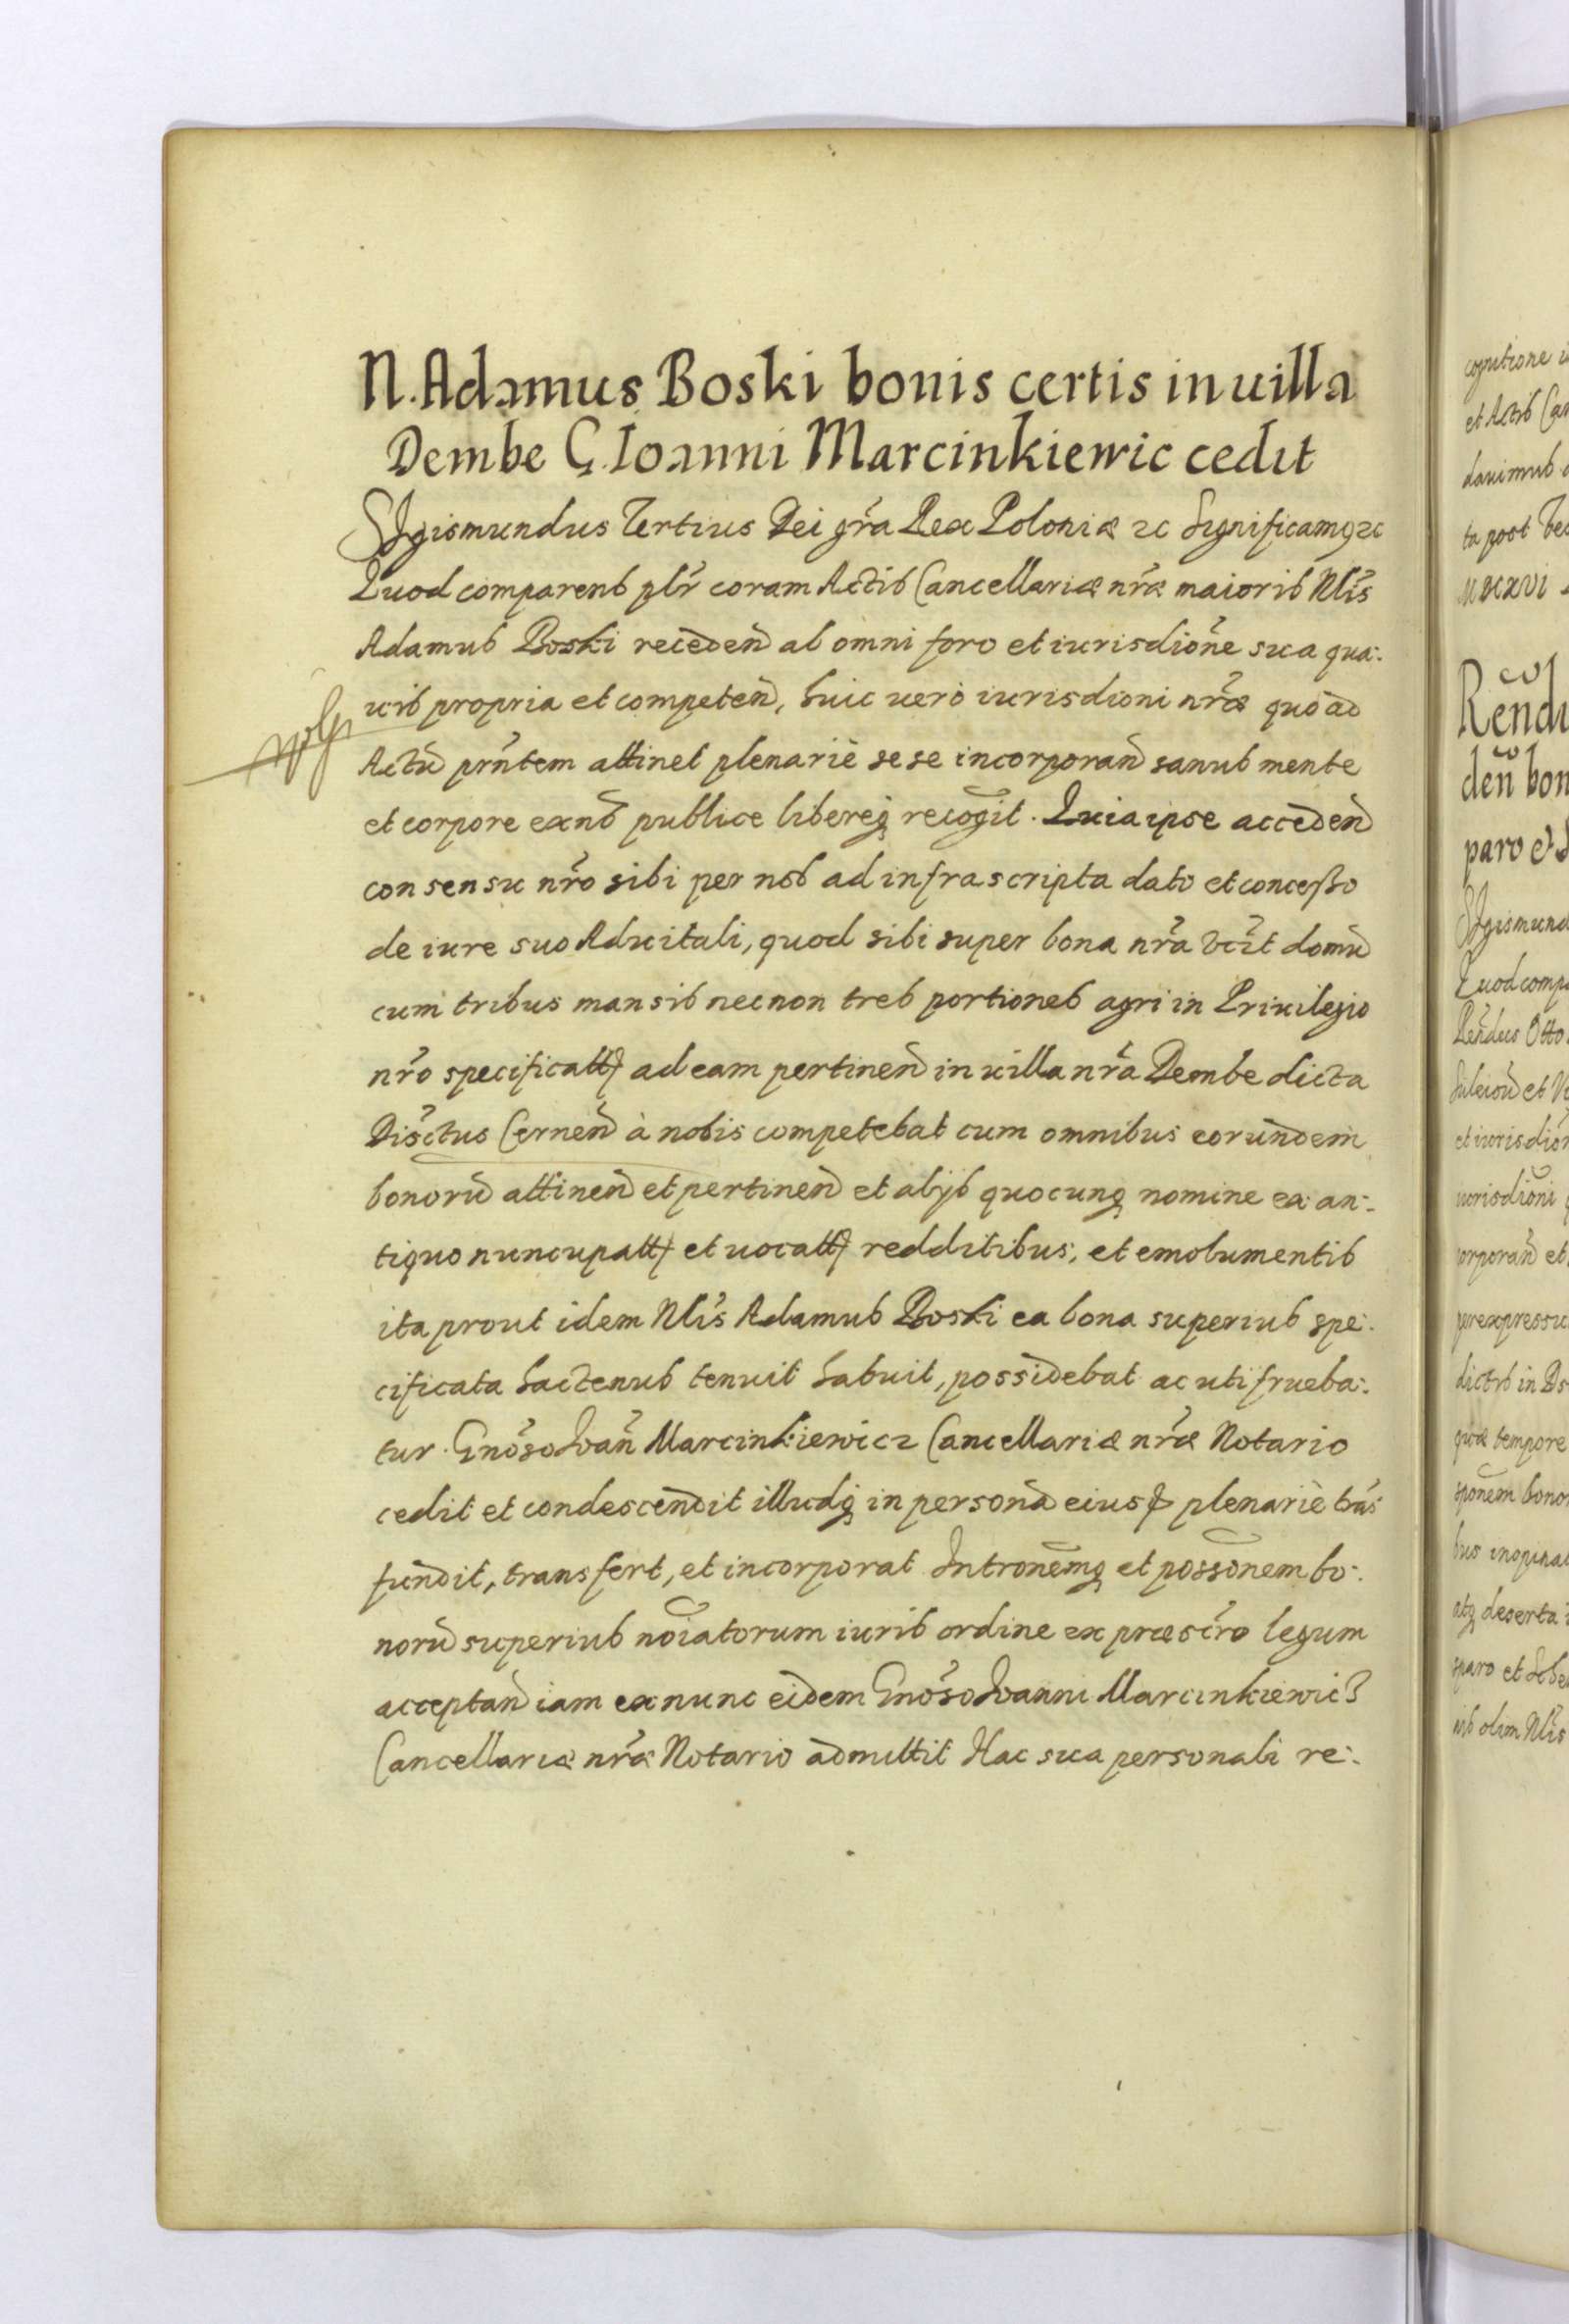 N. Adamus Boski bonis certis in uilla
Dembe G. Ioanni Marcinkiewic cedit
Sigismundus Tertius Dei gr̃a Rex Poloniæ ꝛc Significamꝰ ꝛc
Quod comparens pl̃r coram Actis Cancellariæ nr̃æ maioris Nl̃is
Adamus Boski recedeñ ab omni foro et iurisdiõne sua qua:
uis propria et competeñ, huic uero iurisdioni nr̃æ quo ad
Actũ pñtem attinet plenariè sese incorporañ sanus mente
et corpore exns̃ publice libereq́ recog̃it. Quia ipse accedeñ
consensu nr̃o sibi per nos ad infrascripta dato et concesso
de iure suo Aduitali, quod sibi super bona nr̃a vc̃it domũ
cum tribus mansis necnon tres portiones agri in Priuilegio
nr̃o specificatt̃ ad eam pertineñ in uilla nr̃a Dembe dicta
Dis̃ctus Cerneñ à nobis competebat cum omnibus eorundem
bonorũ attineñ et pertineñ et alijs quocunq́ nomine ex an:
tiquo nuncupatt̃ et uocatt̃ redditibus, et emolumentis
ita prout idem Nl̃is Adamus Boski ea bona superius spe:
cificata hactenus tenuit habuit, possidebat ac utifrueba:
tur. Gnõso Ioañ Marcinkiewicz Cancellariæ nr̃æ Notario
cedit et condescendit illudq́ in personã eiusd̃ plenariè trãs
fundit, transfert, et incorporat Intronẽmq́ et possõnem bo:
norũ superius nõiatorum iuris ordine ex præscr̃o legum
acceptañ iam exnunc eidem Gnõso Ioanni Marcinkiewicz
Cancellariæ nr̃æ Notario admittit Hac sua personali re:
cognitione
et Actis Can
dauimus
ta post
MDCXVI
Rend̃
deñ bon
paro et
Sigismund
Quod comp
Reñdus Otto
Suleioũ et
et iurisdiõn
iurisdiõni
corporañ et
per expressu
dictis in
quæ tempore
sponẽm bono
bus inopinat
atq́ deserta
sparo et
uis olim Nl̃is